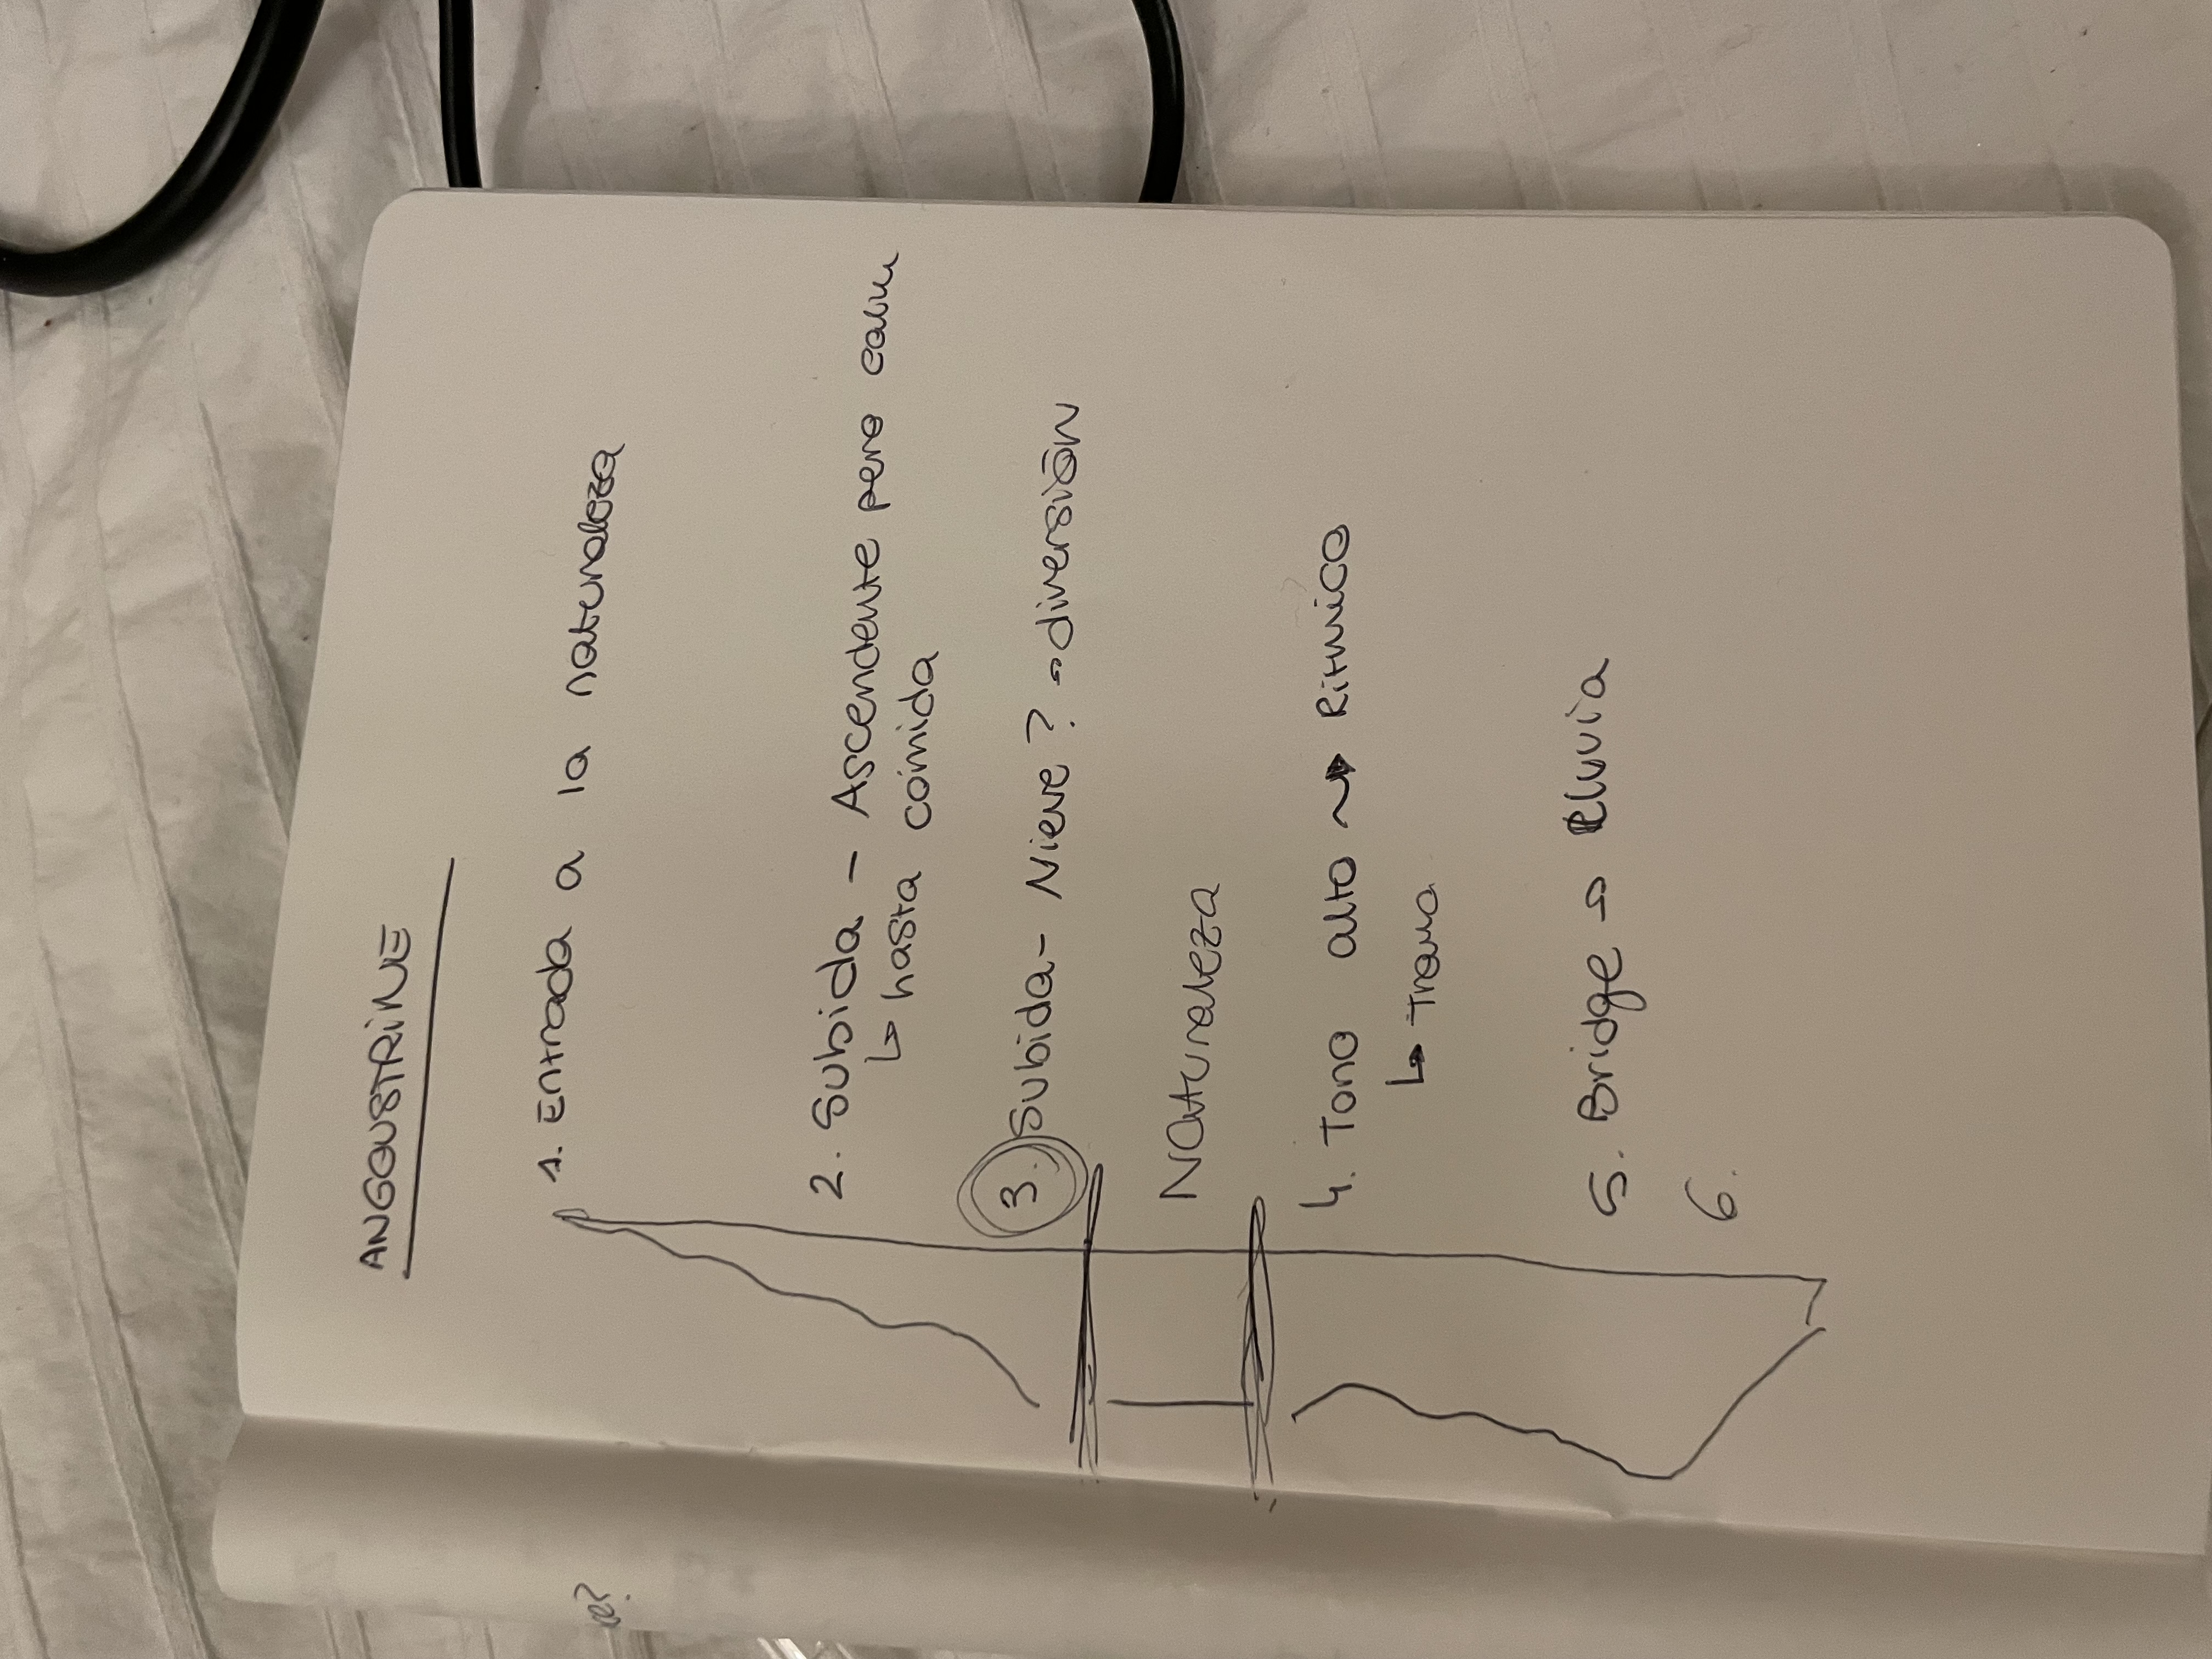 ANGOUSTRINE
1. Entrada a la naturaleza
2. Subida - Ascendente pero calm
↳ hasta comida
3. Subida - Nieve? → diversión
Naturaleza
4. Tono alto → Ritmico
↳ Trama
5. Bridge → lluvia
6.